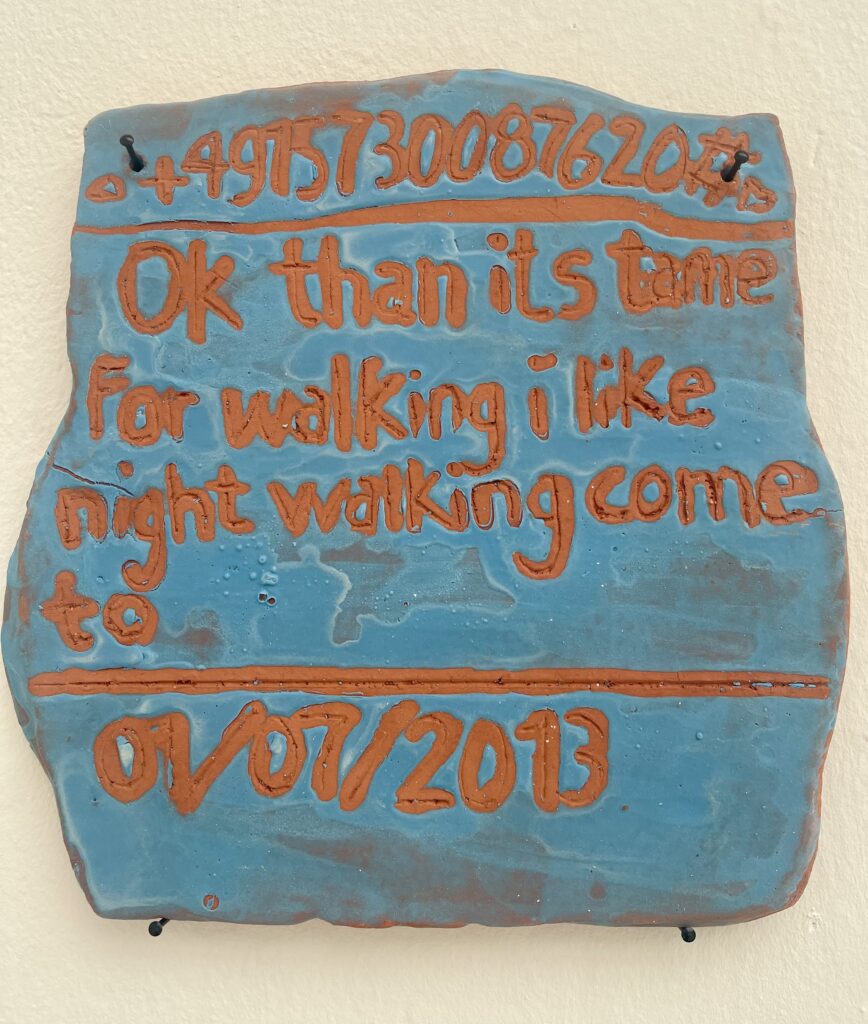 +4915730087620#
Ok than its tame
For walking i like
night walking come
to
01/07/2013